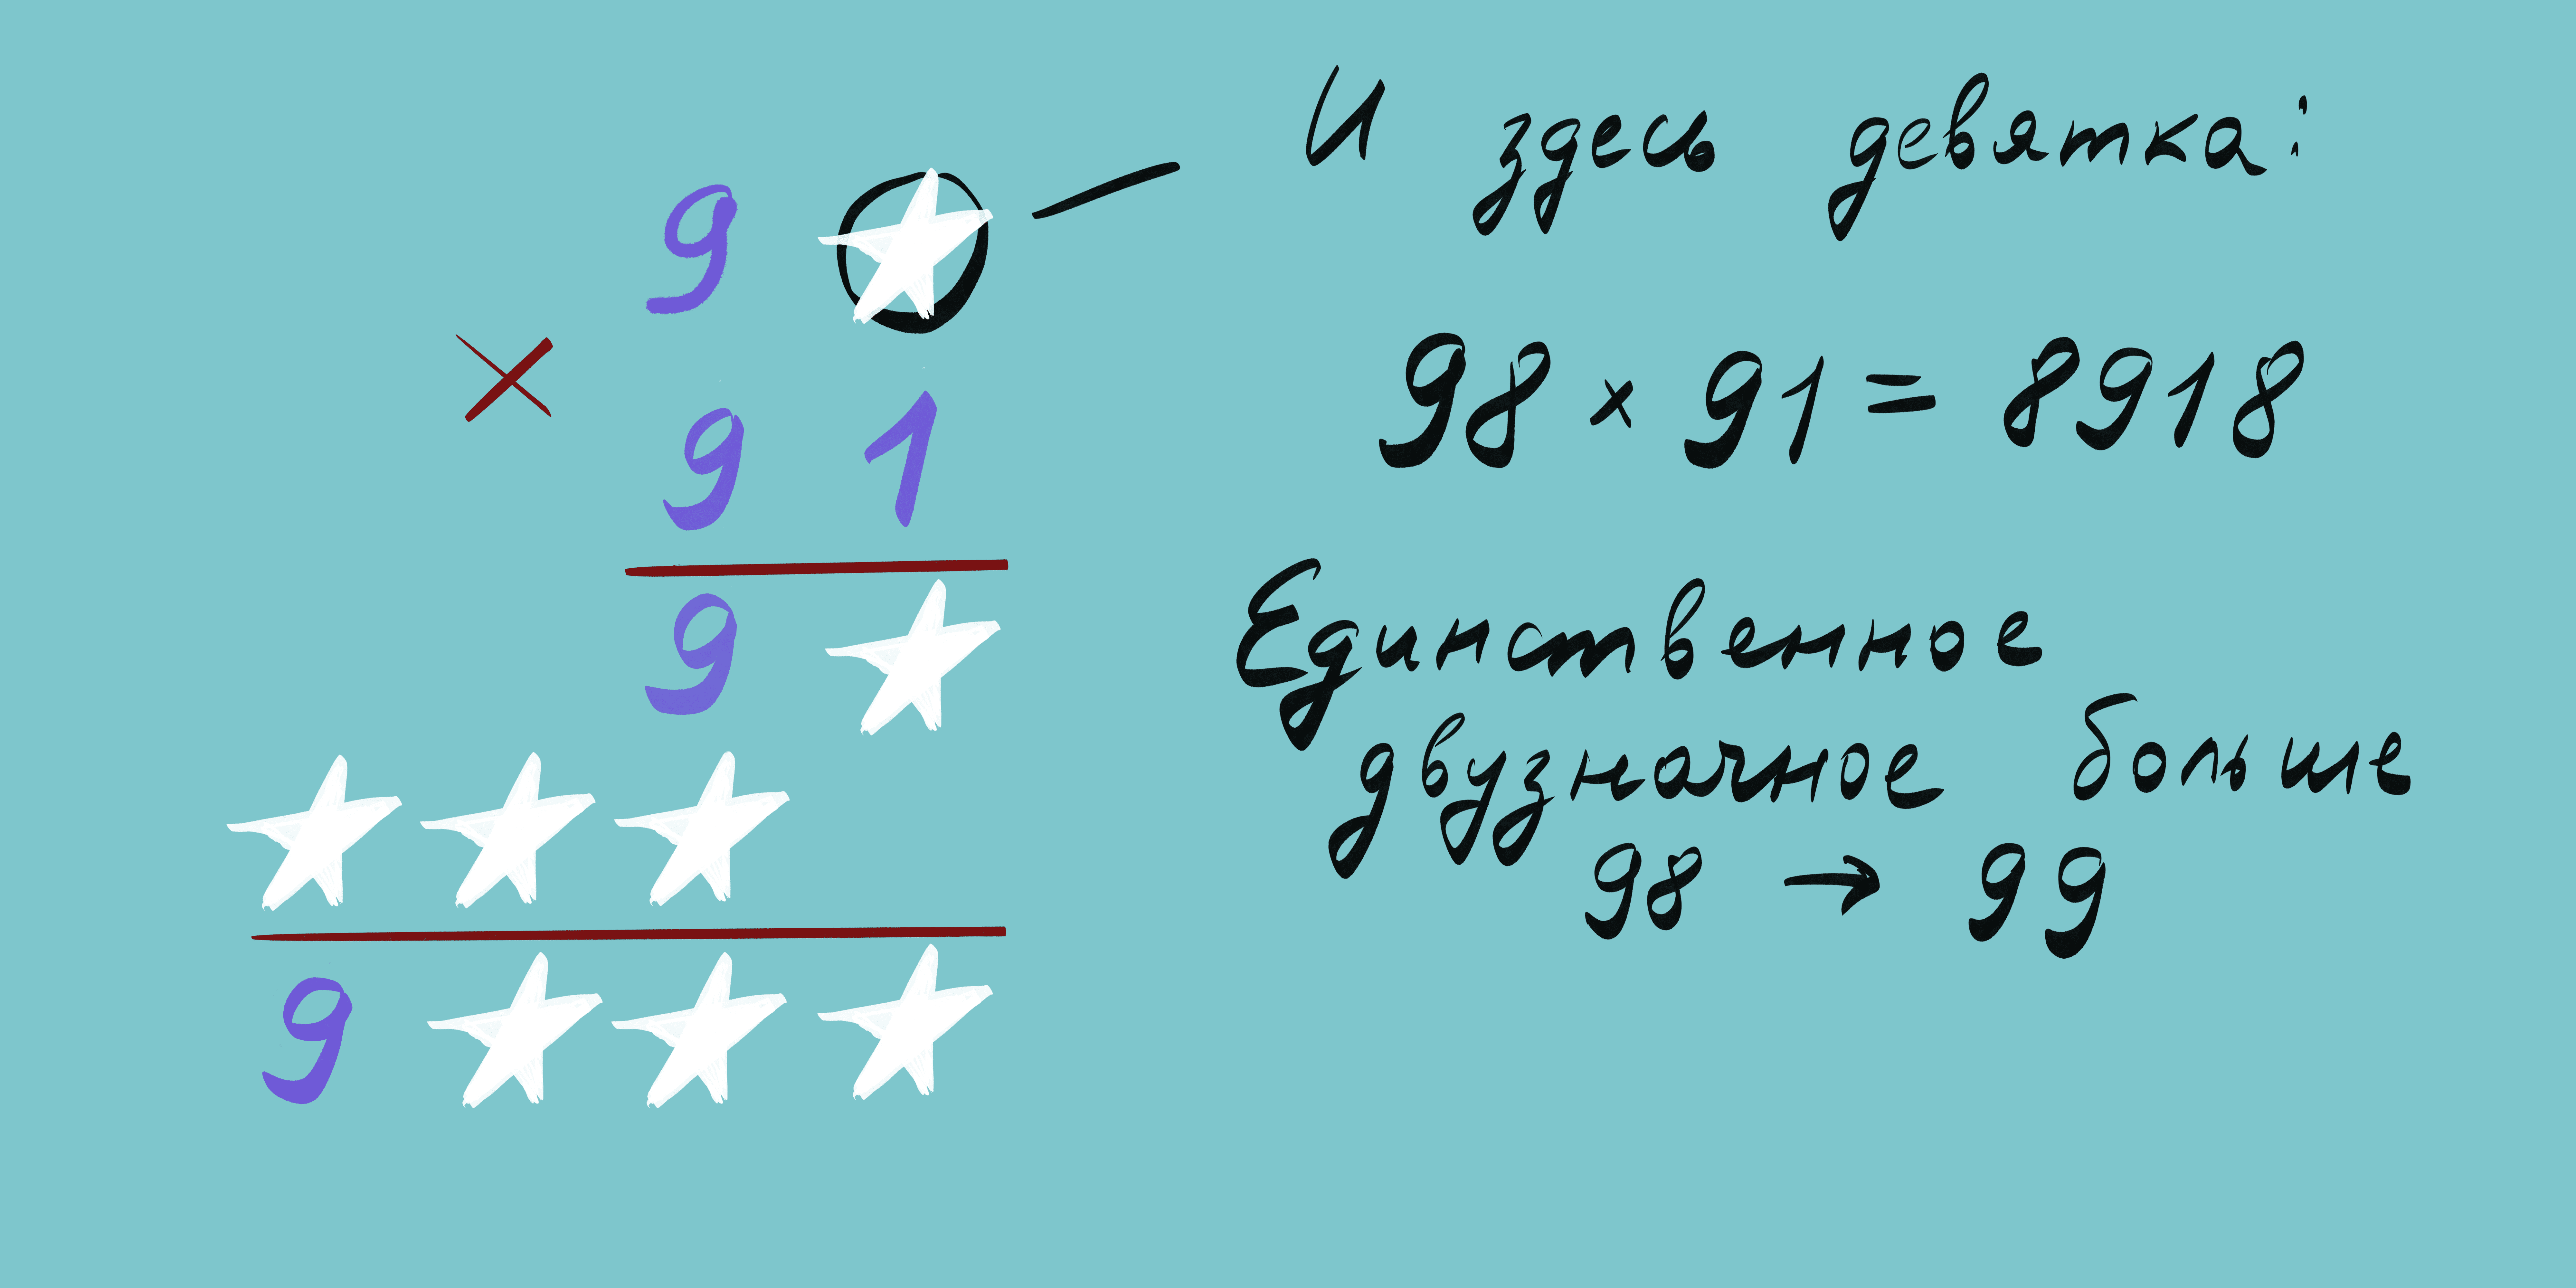 9 ★
× 9 1
9 ★
★ ★ ★
9 ★ ★ ★
И здесь девятка:
98 × 91 = 8918
Единственное
двузначное больше
98 → 99